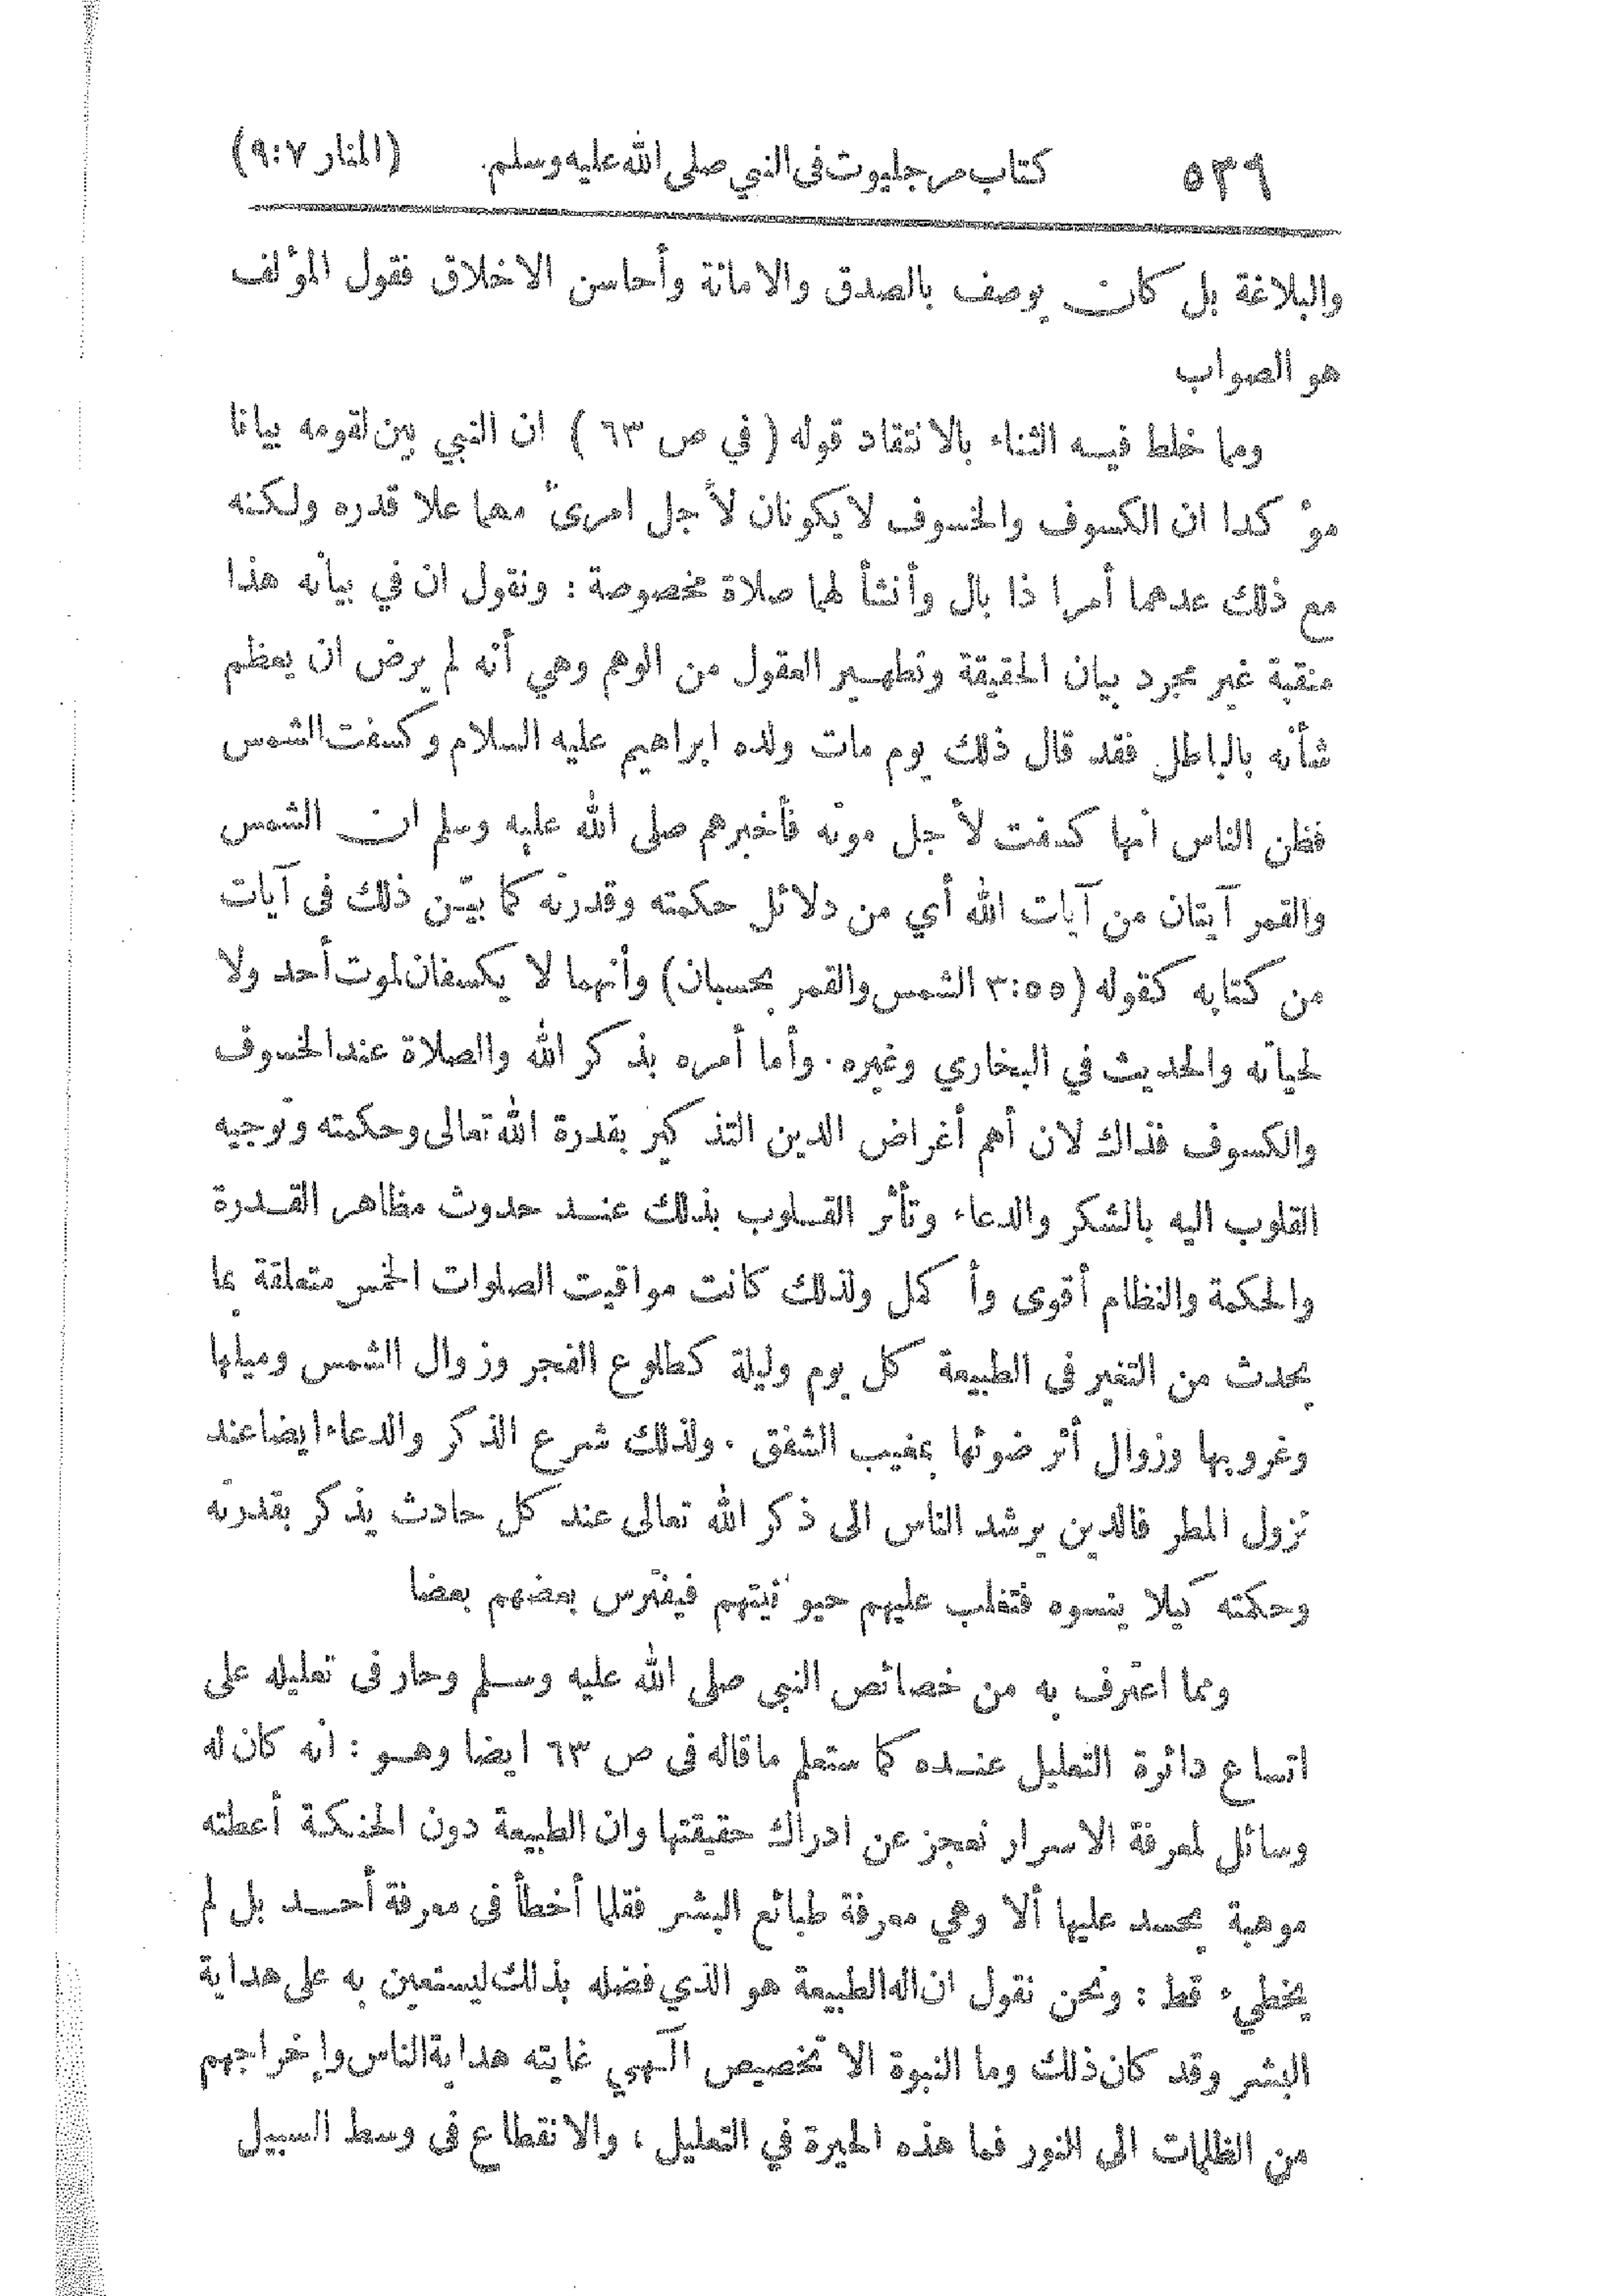 ٥٣٩ كتاب مرجليوث فى النبي صلى الله عليه وسلم. (المنار ٩:٧)
والبلاغة بل كان يوصف بالصدق والامانة وأحاسن الاخلاق فقول المؤلف
هو الصواب
ومما خلط فيه الثناء بالانتقاد قوله ( في ص ٦٣ ) ان النبي بين لقومه بيانا
مؤكدا ان الكسوف والخسوف لا يكونان لأجل امرئ مهما علا قدره ولكنه
مع ذلك عدهما أمرا ذا بال وأنشأ لهما صلاة مخصوصة : ونقول ان في بيانه هذا
منقبة غير مجرد بيان الحقيقة وتطهير العقول من الوهم وهي أنه لم يرض ان يعظم
شأنه بالباطل فقد قال ذلك يوم مات ولده ابراهيم عليه السلام وكسفت الشمس
فظن الناس انها كسفت لأجل موته فأخبرهم صلى الله عليه وسلم ان الشمس
والقمر آيتان من آيات الله أي من دلائل حكمته وقدرته كما بيّن ذلك فى آيات
من كتابه كقوله (٣:٥٥ الشمس والقمر بحسبان) وأنهما لا يكسفان لموت أحد ولا
لحياته والحديث في البخاري وغيره . وأما أمره بذكر الله والصلاة عند الخسوف
والكسوف فذاك لان أهم أغراض الدين التذكير بقدرة الله تعالى وحكمته وتوجيه
القلوب اليه بالشكر والدعاء وتأثر القلوب بذلك عند حدوث مظاهر القدرة
والحكمة والنظام أقوى وأكمل ولذلك كانت مواقيت الصلوات الخمس متعلقة بما
يحدث من التغير فى الطبيعة كل يوم وليلة كطلوع الفجر وزوال الشمس وميلها
وغروبها وزوال أثر ضوئها بمغيب الشفق . ولذلك شرع الذكر والدعاء ايضا عند
نزول المطر فالدين يرشد الناس الى ذكر الله تعالى عند كل حادث يذكر بقدرته
وحكمته كيلا ينسوه فتغلب عليهم حيوانيتهم فيفترس بعضهم بعضا
ومما اعترف به من خصائص النبي صلى الله عليه وسلم وحار فى تعليله على
اتساع دائرة التعليل عنده كما ستعلم ما قاله فى ص ٦٣ ايضا وهو : انه كان له
وسائل لمعرفة الاسرار نعجز عن ادراك حقيقتها وان الطبيعة دون الحنكة أعطته
موهبة يحسد عليها ألا وهي معرفة طبائع البشر فقلما أخطأ فى معرفة أحد بل لم
يخطيء قط : ونحن نقول ان اله الطبيعة هو الذي فضله بذلك ليستعين به على هداية
البشر وقد كان ذلك وما النبوة الا تخصيص الٓهي غايته هداية الناس وإخراجهم
من الظلمات الى النور فما هذه الحيرة في التعليل ، والانقطاع فى وسط السبيل